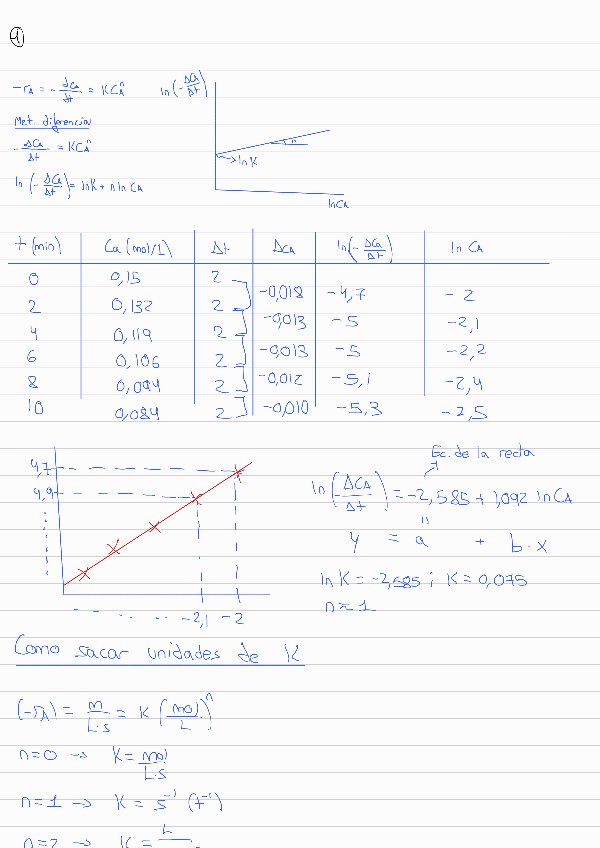 1
-rA = - dCA/dt = KCA^n
ln(-ΔCA/Δt)
Met. diferencial
-ΔCA/Δt = KCA^n
ln(-ΔCA/Δt) = lnK + n ln CA
n
lnK
lnCA
t (min) Ca (mol/l) Δt ΔCA ln(-ΔCA/Δt) ln CA
0 0,15 2
-0,018 -4,7 -2
2 0,132 2
-0,013 -5 -2,1
4 0,119 2
-0,013 -5 -2,2
6 0,106 2
-0,012 -5,1 -2,4
8 0,094 2
-0,010 -5,3 -2,5
10 0,084 2
4,7
4,9
-2,1 -2
Ec. de la recta
ln(ΔCA/Δt) = -2,585 + 1,092 lnCA
y = a + b·x
lnK = -2,585 ; K = 0,075
n ≈ 1
Como sacar unidades de K
(-rA) = m/L·s = K (mol/L)^n
n=0 → K = mol/L·s
n=1 → K = s^-1 (t^-1)
n=2 → K = L